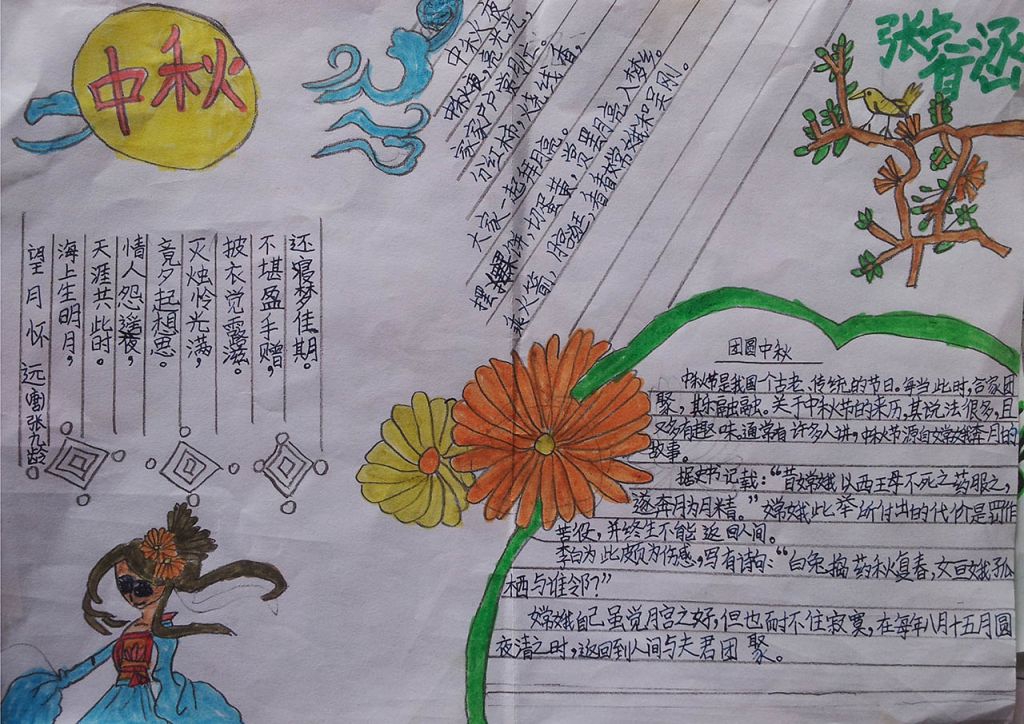 中秋
中秋夜,亮光光,
家家户户赏月忙。
分红柿,烧线香,
大家一起拜月亮。
摆果饼,切蛋黄,赏罢月亮入梦乡。
乘火箭,月宫逛,看看嫦娥和吴刚。
张 涵
望月怀远 唐 张九龄
海上生明月,
天涯共此时。
情人怨遥夜,
竟夕起想思。
灭烛怜光满,
披衣觉露滋。
不堪盈手赠,
还寝梦佳期。
团圆中秋
中秋节是我国一个古老、传统的节日。每当此时,合家团
聚,其乐融融。关于中秋节的来历,其说法很多,且
又多有趣味。通常有许多人讲,中秋节源自嫦娥奔月的
故事。
据史书记载:“昔嫦娥以西王母不死之药服之,
遂奔月为月精。”嫦娥此举所付出的代价是罚作
苦役,并终生不能返回人间。
李白为此颇为伤感,写有诗句:“白兔捣药秋复春,女亘娥孤
栖与谁邻?”
嫦娥自己虽觉月宫之好,但也耐不住寂寞,在每年八月十五月圆
夜清之时,返回到人间与夫君团聚。